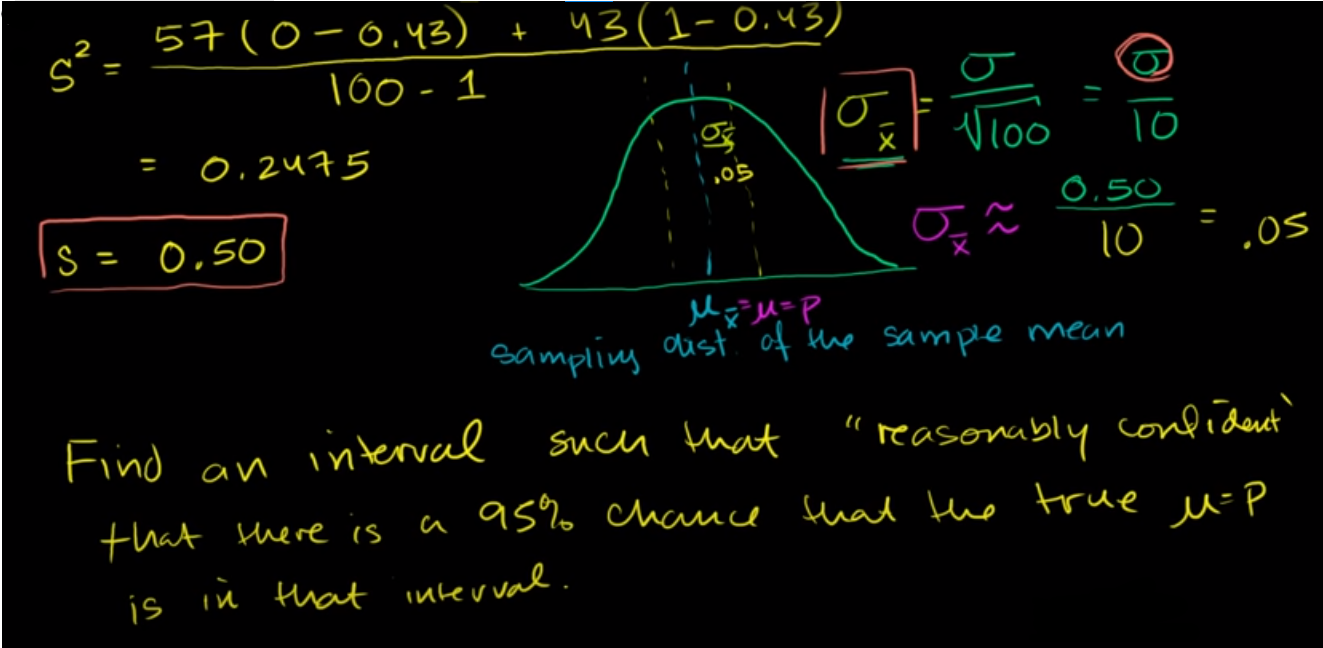 S² = 57(0 - 0.43) + 43(1 - 0.43) / 100 - 1
= 0.2475
S = 0.50
σx̄ = σ/√100 = σ/10
σx̄ ≈ 0.50/10 = .05
σx̄
.05
μx̄ = μ = P
sampling dist. of the sample mean
Find an interval such that "reasonably confident"
that there is a 95% chance that the true μ = P
is in that interval.